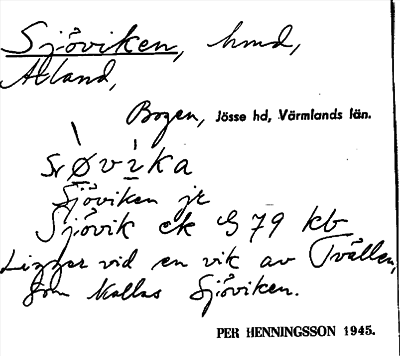 Sjöviken, hmd,
Åland,
Bogen, Jösse hd, Värmlands län.
Sjöviken jr
Sjövik ek 79 kb
Ligger vid en vik av Tvällen,
som kallas Sjöviken.
PER HENNINGSSON 1945.